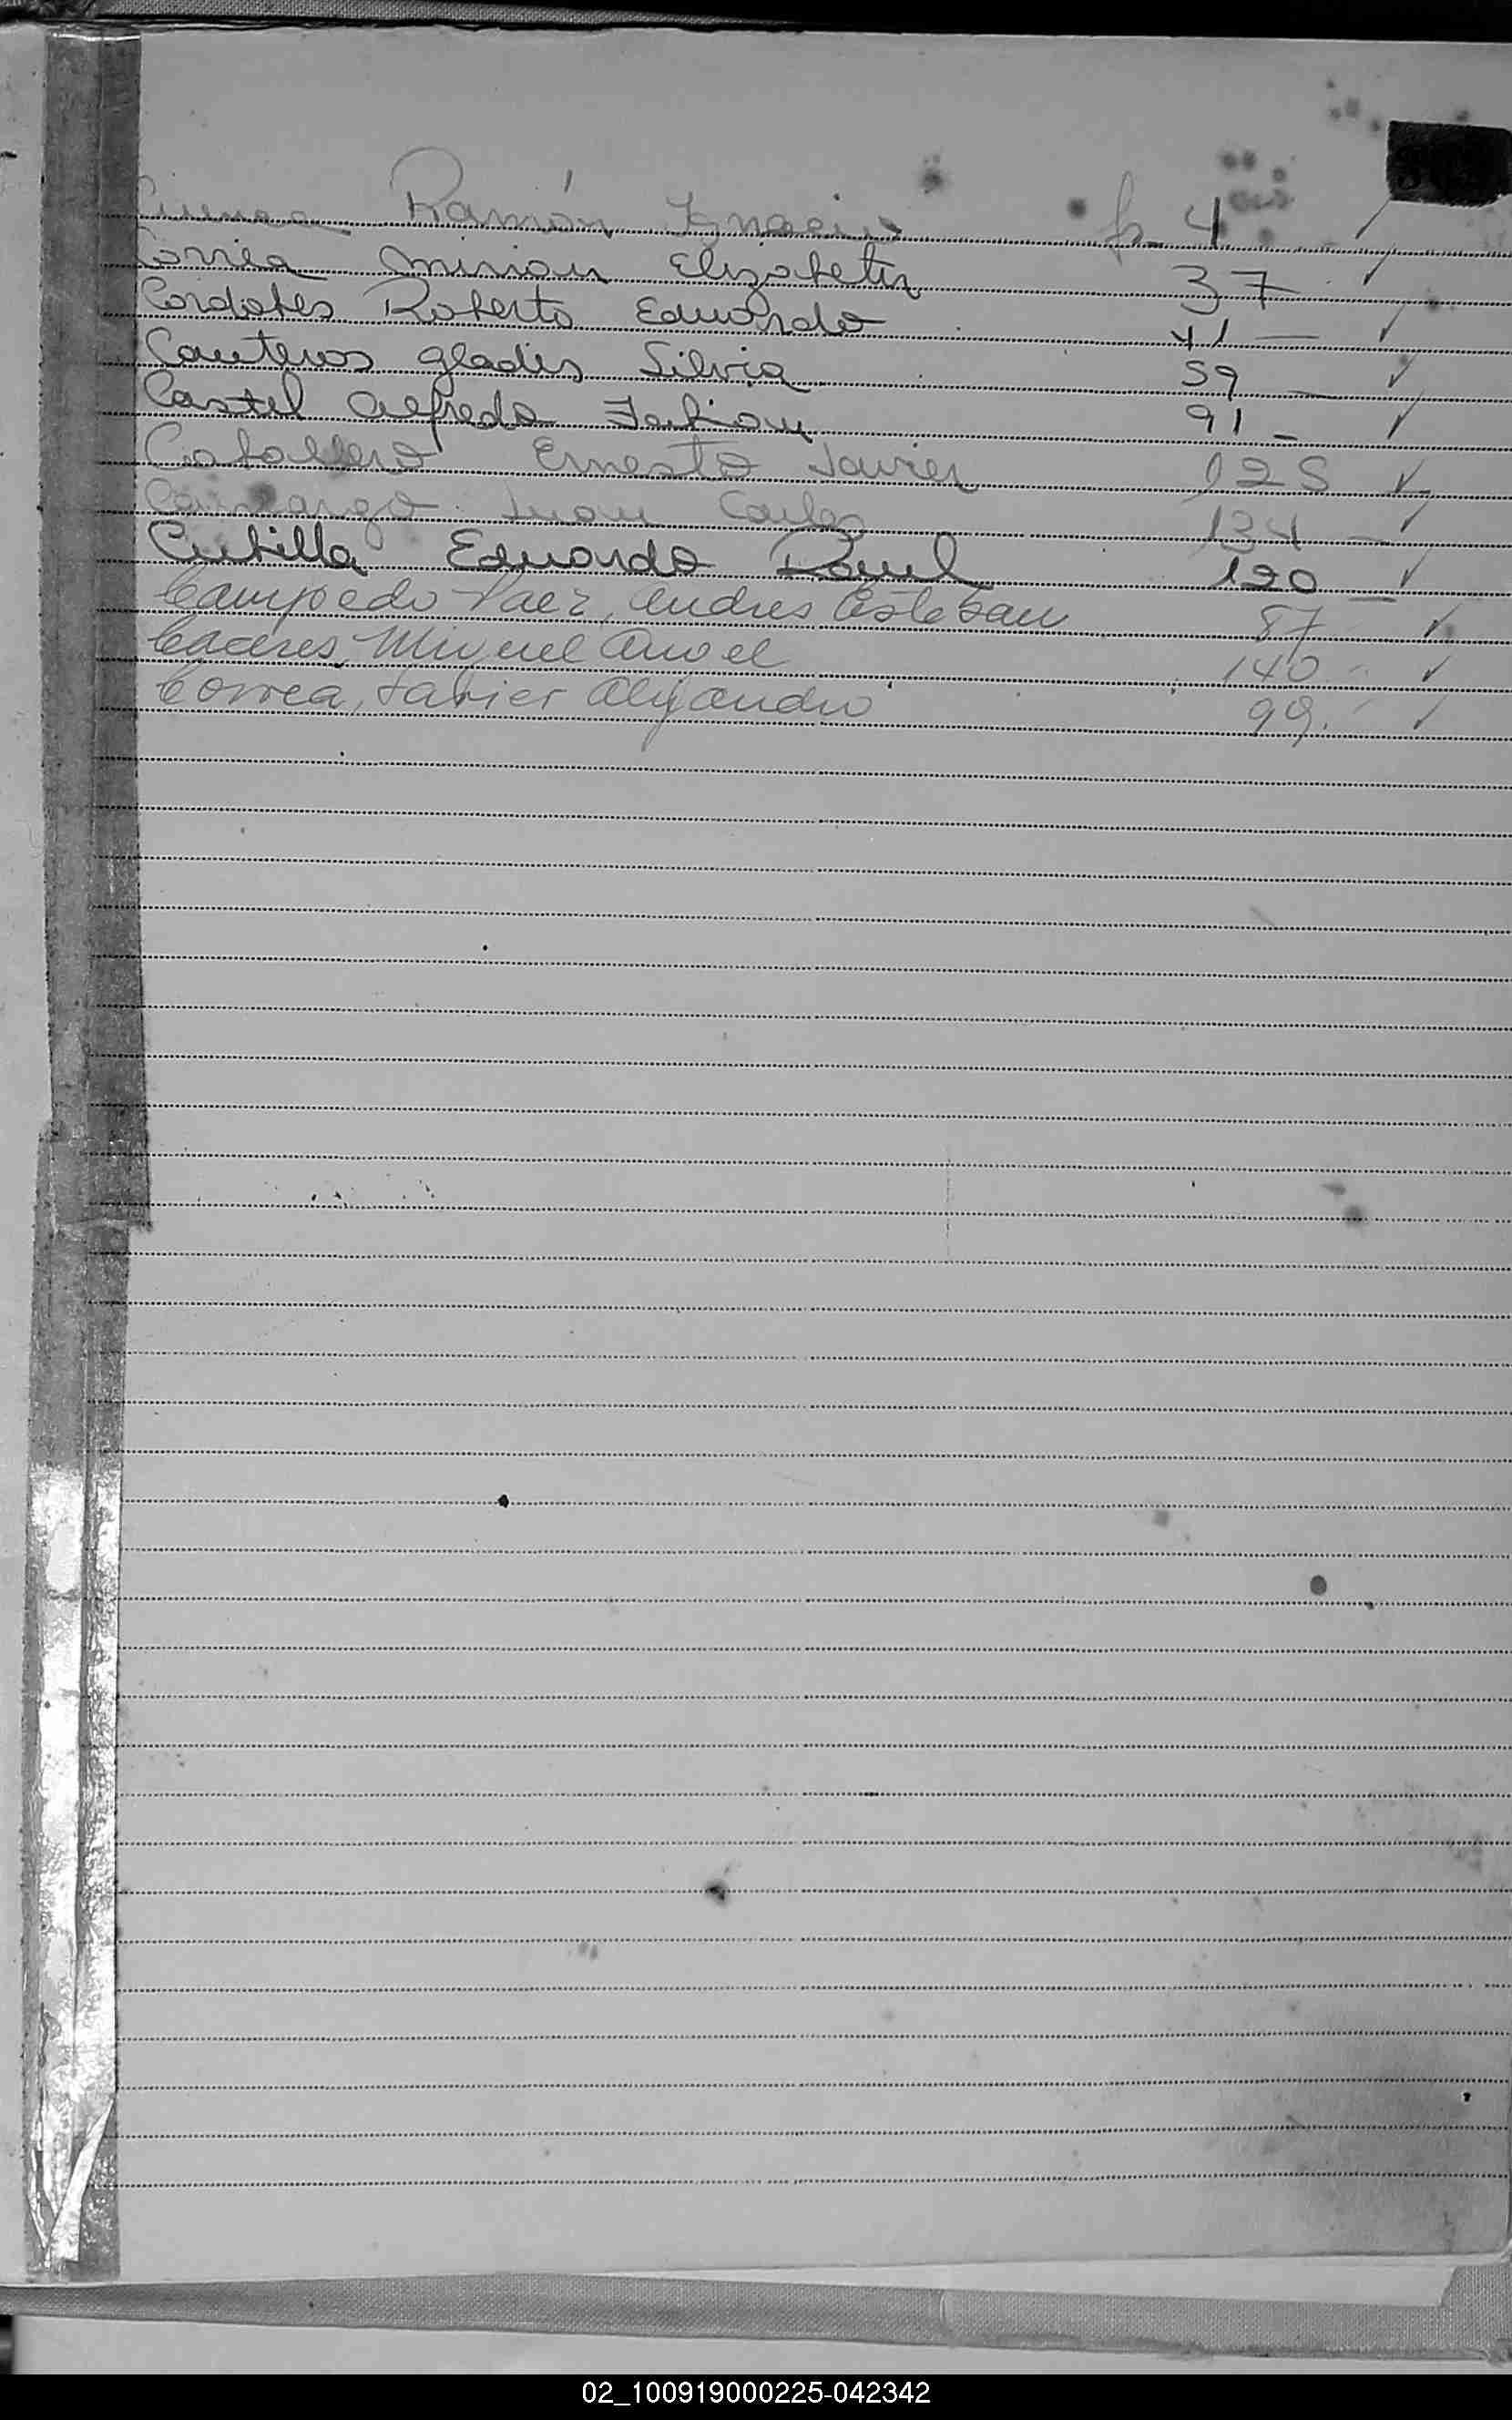 Ramón Ignacio fs 4
Correa Mirian Elizabeth 37
Cordobes Roberto Eduardo 41 —
Canteros Gladis Silvia 59 —
Castel Alfredo Fabian 91 —
Caballero Ernesto Javier 125
Camargo Juan Carlos 134 —
Cubilla Eduardo Raul 120 —
Campedo Paez, Andres Esteban 87
Caceres, Miguel Angel 140
Correa, Javier Alejandro 99.
02_100919000225-042342